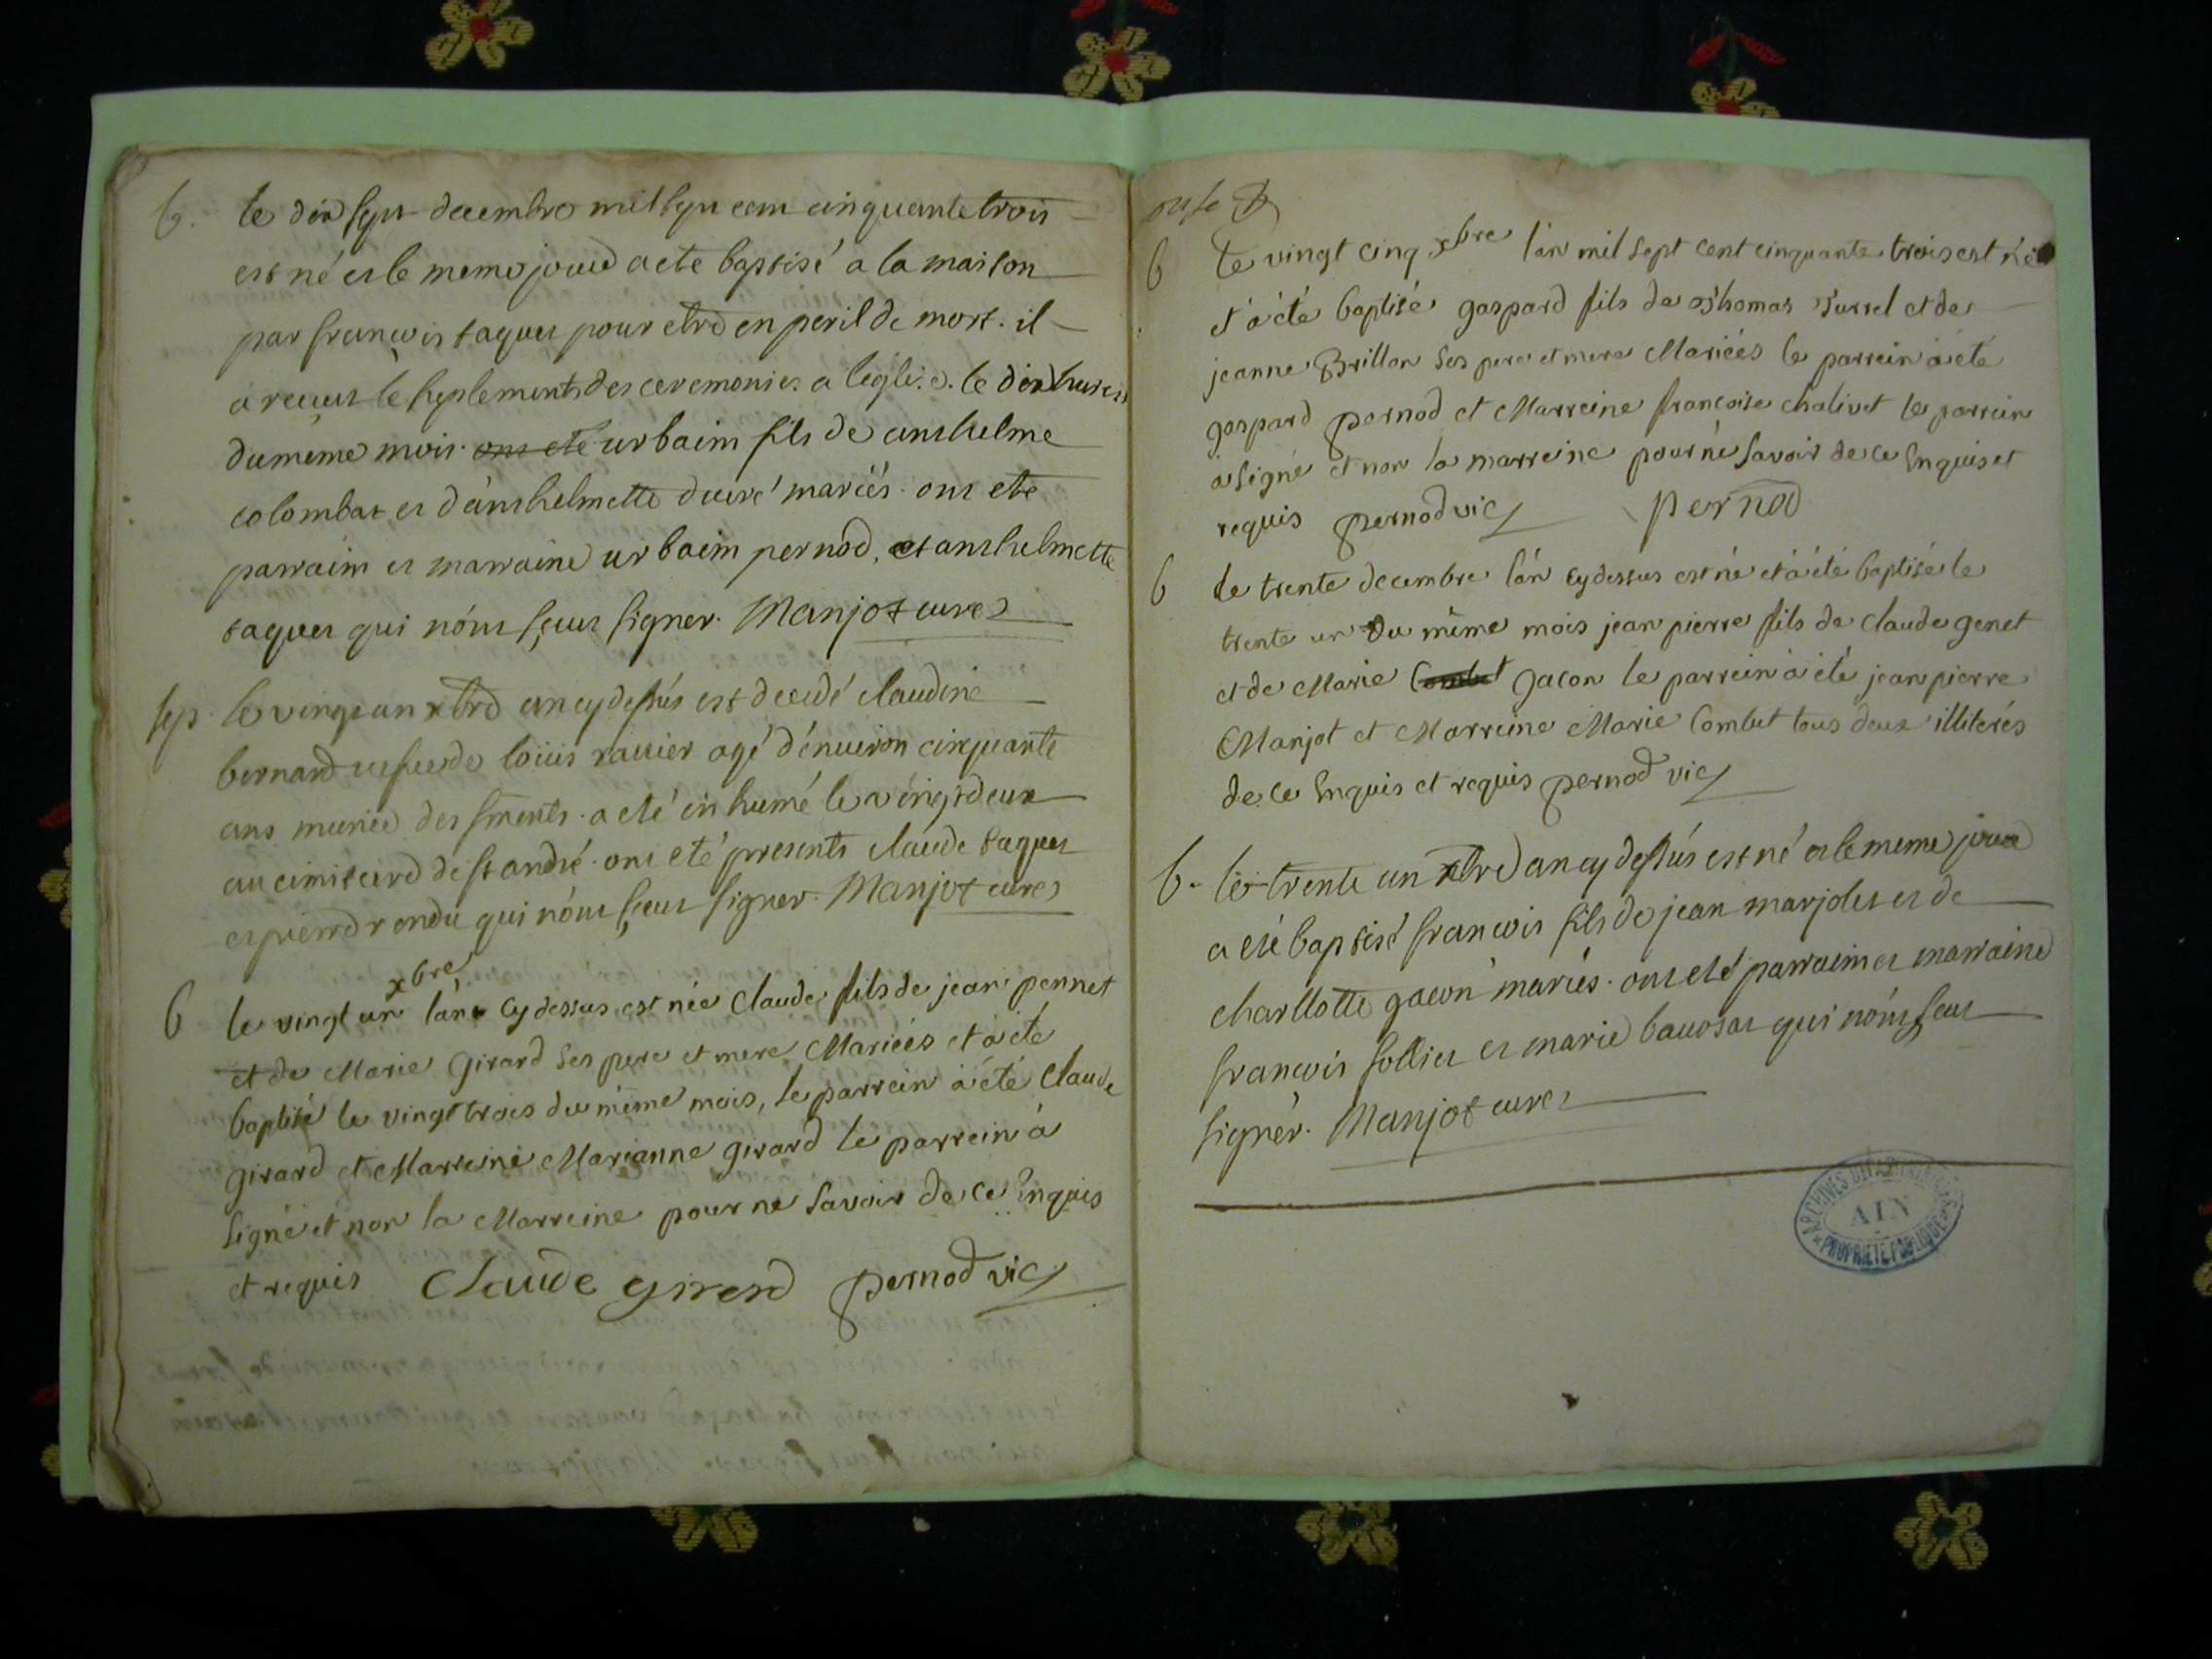 b. le dix sept decembre mil sept cent cinquante trois
est né et le meme jour a eté baptisé a la maison
par francois taquet pour etre en peril de mort. il
a recut le suplements des ceremonies a l'eglise. le dix huit
du méme mois. ont eté urbaim fils de anthelme
colombat et d'anthelmette ducré mariés. ont eté
parraim et marraine urbaim pernod, et anthelmette
taquet qui n'ont sçeut signer. Manjot curé
sep. le vingt un xbre an cy dessús est decedé claudine
bernard de louis ravier agé d'enuiron cinquante
ans munie des sments. a eté in humé le vingt deux
au cimitierre de st andré. ont eté presents claude taquet
et pierre rendu qui n'ont sçeut signer. Manjot curé
xbre
b le vingt un l'an cy dessus est née Claude fils de jean pennet
et de Marie Girard ses pere et mere Mariées et à été
baptisé le vingt trois du même mois, le parrein à été Claude
girard et Marreine Marianne girard le parrein à
signé et non la Marreine pour ne savoir de ce Enquis
et requis Claude girerd pernod vic
b le vingt cinq xbre l'an mil sept cent cinquante trois est né
et à été baptisé gaspard fils de Thomas Turrel et de
jeanne Brillon ses pere et mere Mariées le parrein à été
gaspard pernod et Marreine francoise chalivet le parrein
à signé et non la marreine pour ne savoir de ce Enquis et
requis pernod vic pernod
b le trente decembre l'an cy dessus est né et à été baptisé le
trente un du même mois jean pierre fils de claude genet
et de Marie Combet gacon le parrein à été jean pierre
Manjot et Marreine Marie Combet tous deux illiterés
de ce Enquis et requis pernod vic
b. le trente un xbre an cy dessús est né et le meme jour
a eté baptisé francois fils de jean marjolet et de
charllotte gacon mariés. ont eté parraim et marraine
francois sollier et marie bavosat qui n'ont sceut
signer. Manjot curé
ARCHIVES DEPARTEMENTALES
AIN
PROPRIETE PUBLIQUE